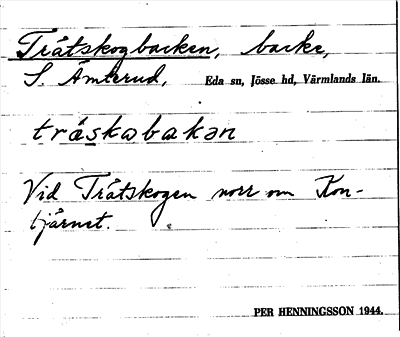 Tråtskogbacken, backe,
S. Ämterud, Eda sn, Jösse hd, Värmlands län.
tráskɷbakan
Vid Tråtskogen norr om Kon-
tjärnet.
PER HENNINGSSON 1944.